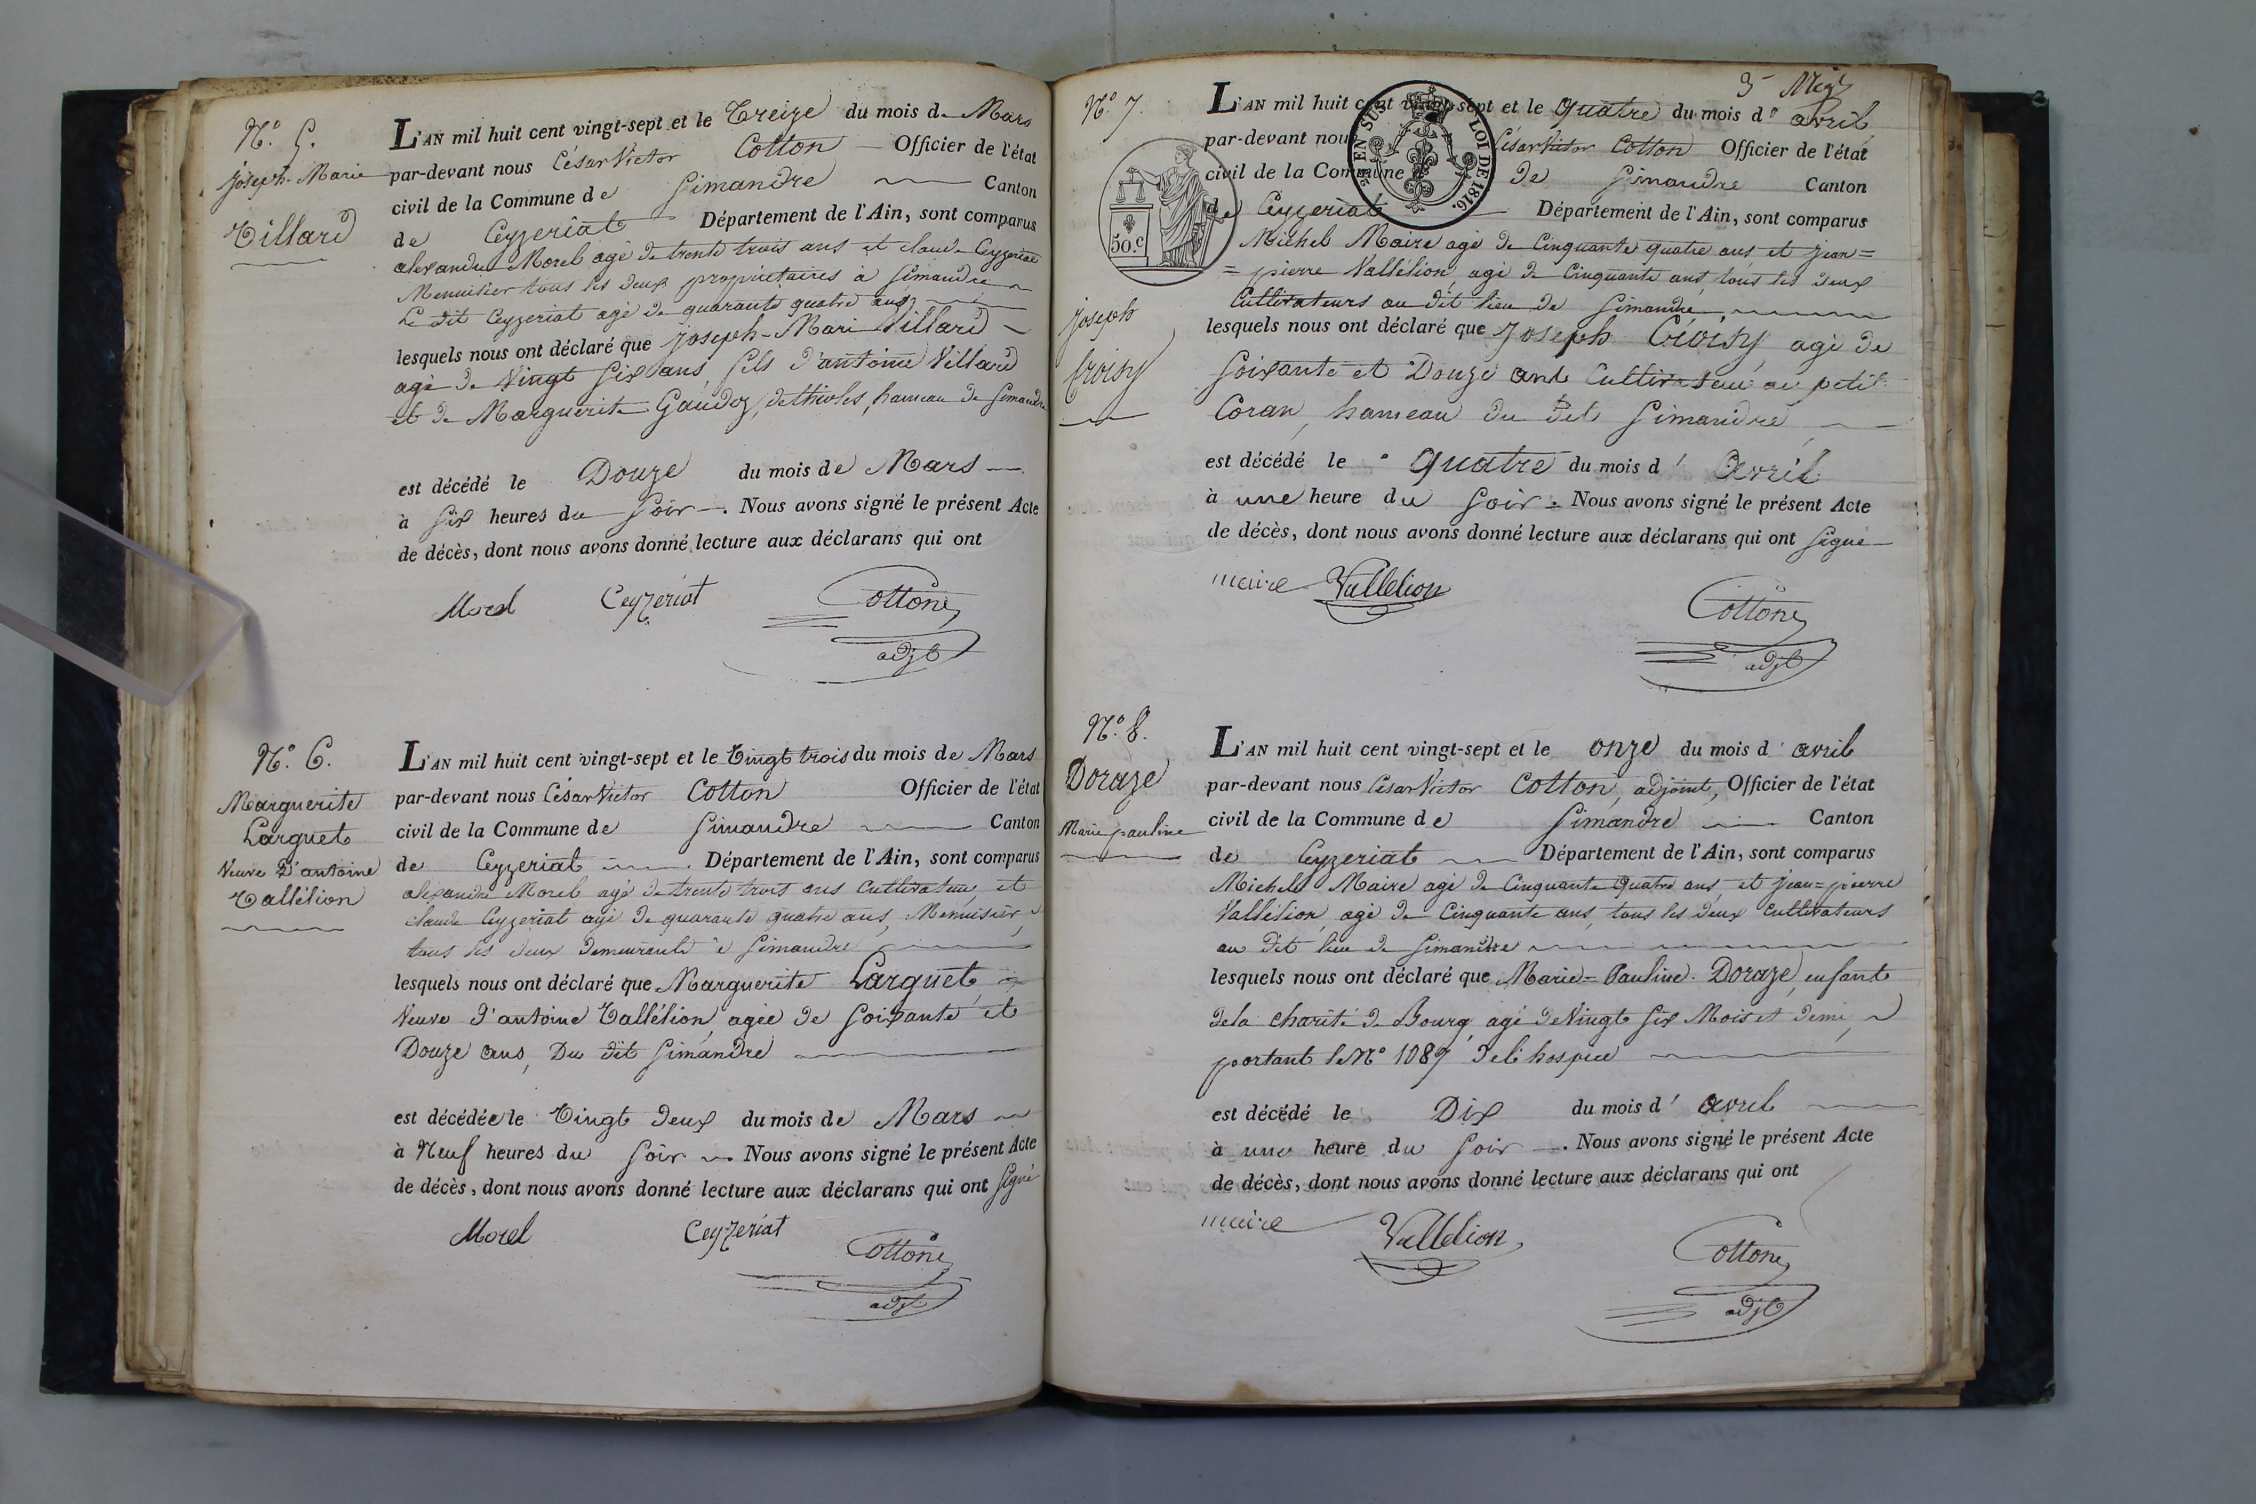 N.° 5.
Joseph-Marie
Villard
L'AN mil huit cent vingt-sept et le Treize du mois de Mars
par-devant nous César Victor Cotton Officier de l'état
civil de la Commune de Simandre Canton
de Ceyzeriat Département de l'Ain, sont comparus
alexandre Morel agé de trente trois ans et claude Ceyzeriat
Menuisier tous les deux propriétaires à Simandre
Le dit Ceyzeriat agé de quarante quatre ans,
lesquels nous ont déclaré que joseph-Mari Villard
agé de Vingt Six ans fils d'antoine Villard
et de Marguerite Gaudoz, de thioles, hameau de Simandre
est décédé le Douze du mois de Mars
à Six heures du Soir. Nous avons signé le présent Acte
de décès, dont nous avons donné lecture aux déclarans qui ont
Morel Ceyzeriat Cotton
adjt
N.° 6.
Marguerite
Larguet
Veuve d'antoine
Vallélion
L'AN mil huit cent vingt-sept et le Vingt trois du mois de Mars
par-devant nous César Victor Cotton Officier de l'état
civil de la Commune de Simandre Canton
de Ceyzeriat Département de l'Ain, sont comparus
alexandre Morel agé de trente trois ans Cultivateur, et
claude Ceyzeriat agé de quarante quatre ans, Menuisier,
tous les deux demeurants à Simandre
lesquels nous ont déclaré que Marguerite Larguet,
Veuve d'antoine Vallélion, agée de Soixante et
Douze ans, Du dit Simandre
est décédée le Vingt deux du mois de Mars
à Neuf heures du Soir. Nous avons signé le présent Acte
de décès, dont nous avons donné lecture aux déclarans qui ont Signé
Morel Ceyzeriat Cotton
adjt
N.° 7.
L'AN mil huit cent vingt-sept et le quatre du mois d' avril
par-devant nous César Victor Cotton Officier de l'état
EN SUS LOI DE 1816.
civil de la Commune de Simandre Canton
de Ceyzeriat Département de l'Ain, sont comparus
50.c
Michel Maire agé de Cinquante quatre ans et jean=
=pierre Vallélion, agé de Cinquante ans, tous les deux
Cultivateurs au dit lieu de Simandre,
joseph
Croisy
lesquels nous ont déclaré que Joseph Croisy agé de
Soixante et Douze ans Cultivateur au petit
Coran, hameau du dit Simandre
est décédé le quatre du mois d' avril
à une heure du Soir. Nous avons signé le présent Acte
de décès, dont nous avons donné lecture aux déclarans qui ont Signé
maire Vallelion Cotton
adjt
N.° 8.
Doraze
Marie pauline
L'AN mil huit cent vingt-sept et le onze du mois d' avril
par-devant nous César Victor Cotton, adjoint, Officier de l'état
civil de la Commune de Simandre Canton
de Ceyzeriat Département de l'Ain, sont comparus
Michel Maire agé de Cinquante quatre ans et jean=pierre
Vallélion, agé de Cinquante ans, tous les deux cultivateurs
au dit lieu de Simandre
lesquels nous ont déclaré que Marie=Pauline Doraze, enfant
de la charité de Bourg, agé de Vingt Six Mois et demi,
portant le N° 1087 de l'hospice
est décédé le Dix du mois d' avril
à une heure du Soir. Nous avons signé le présent Acte
de décès, dont nous avons donné lecture aux déclarans qui ont
maire Vallelion Cotton
adjt